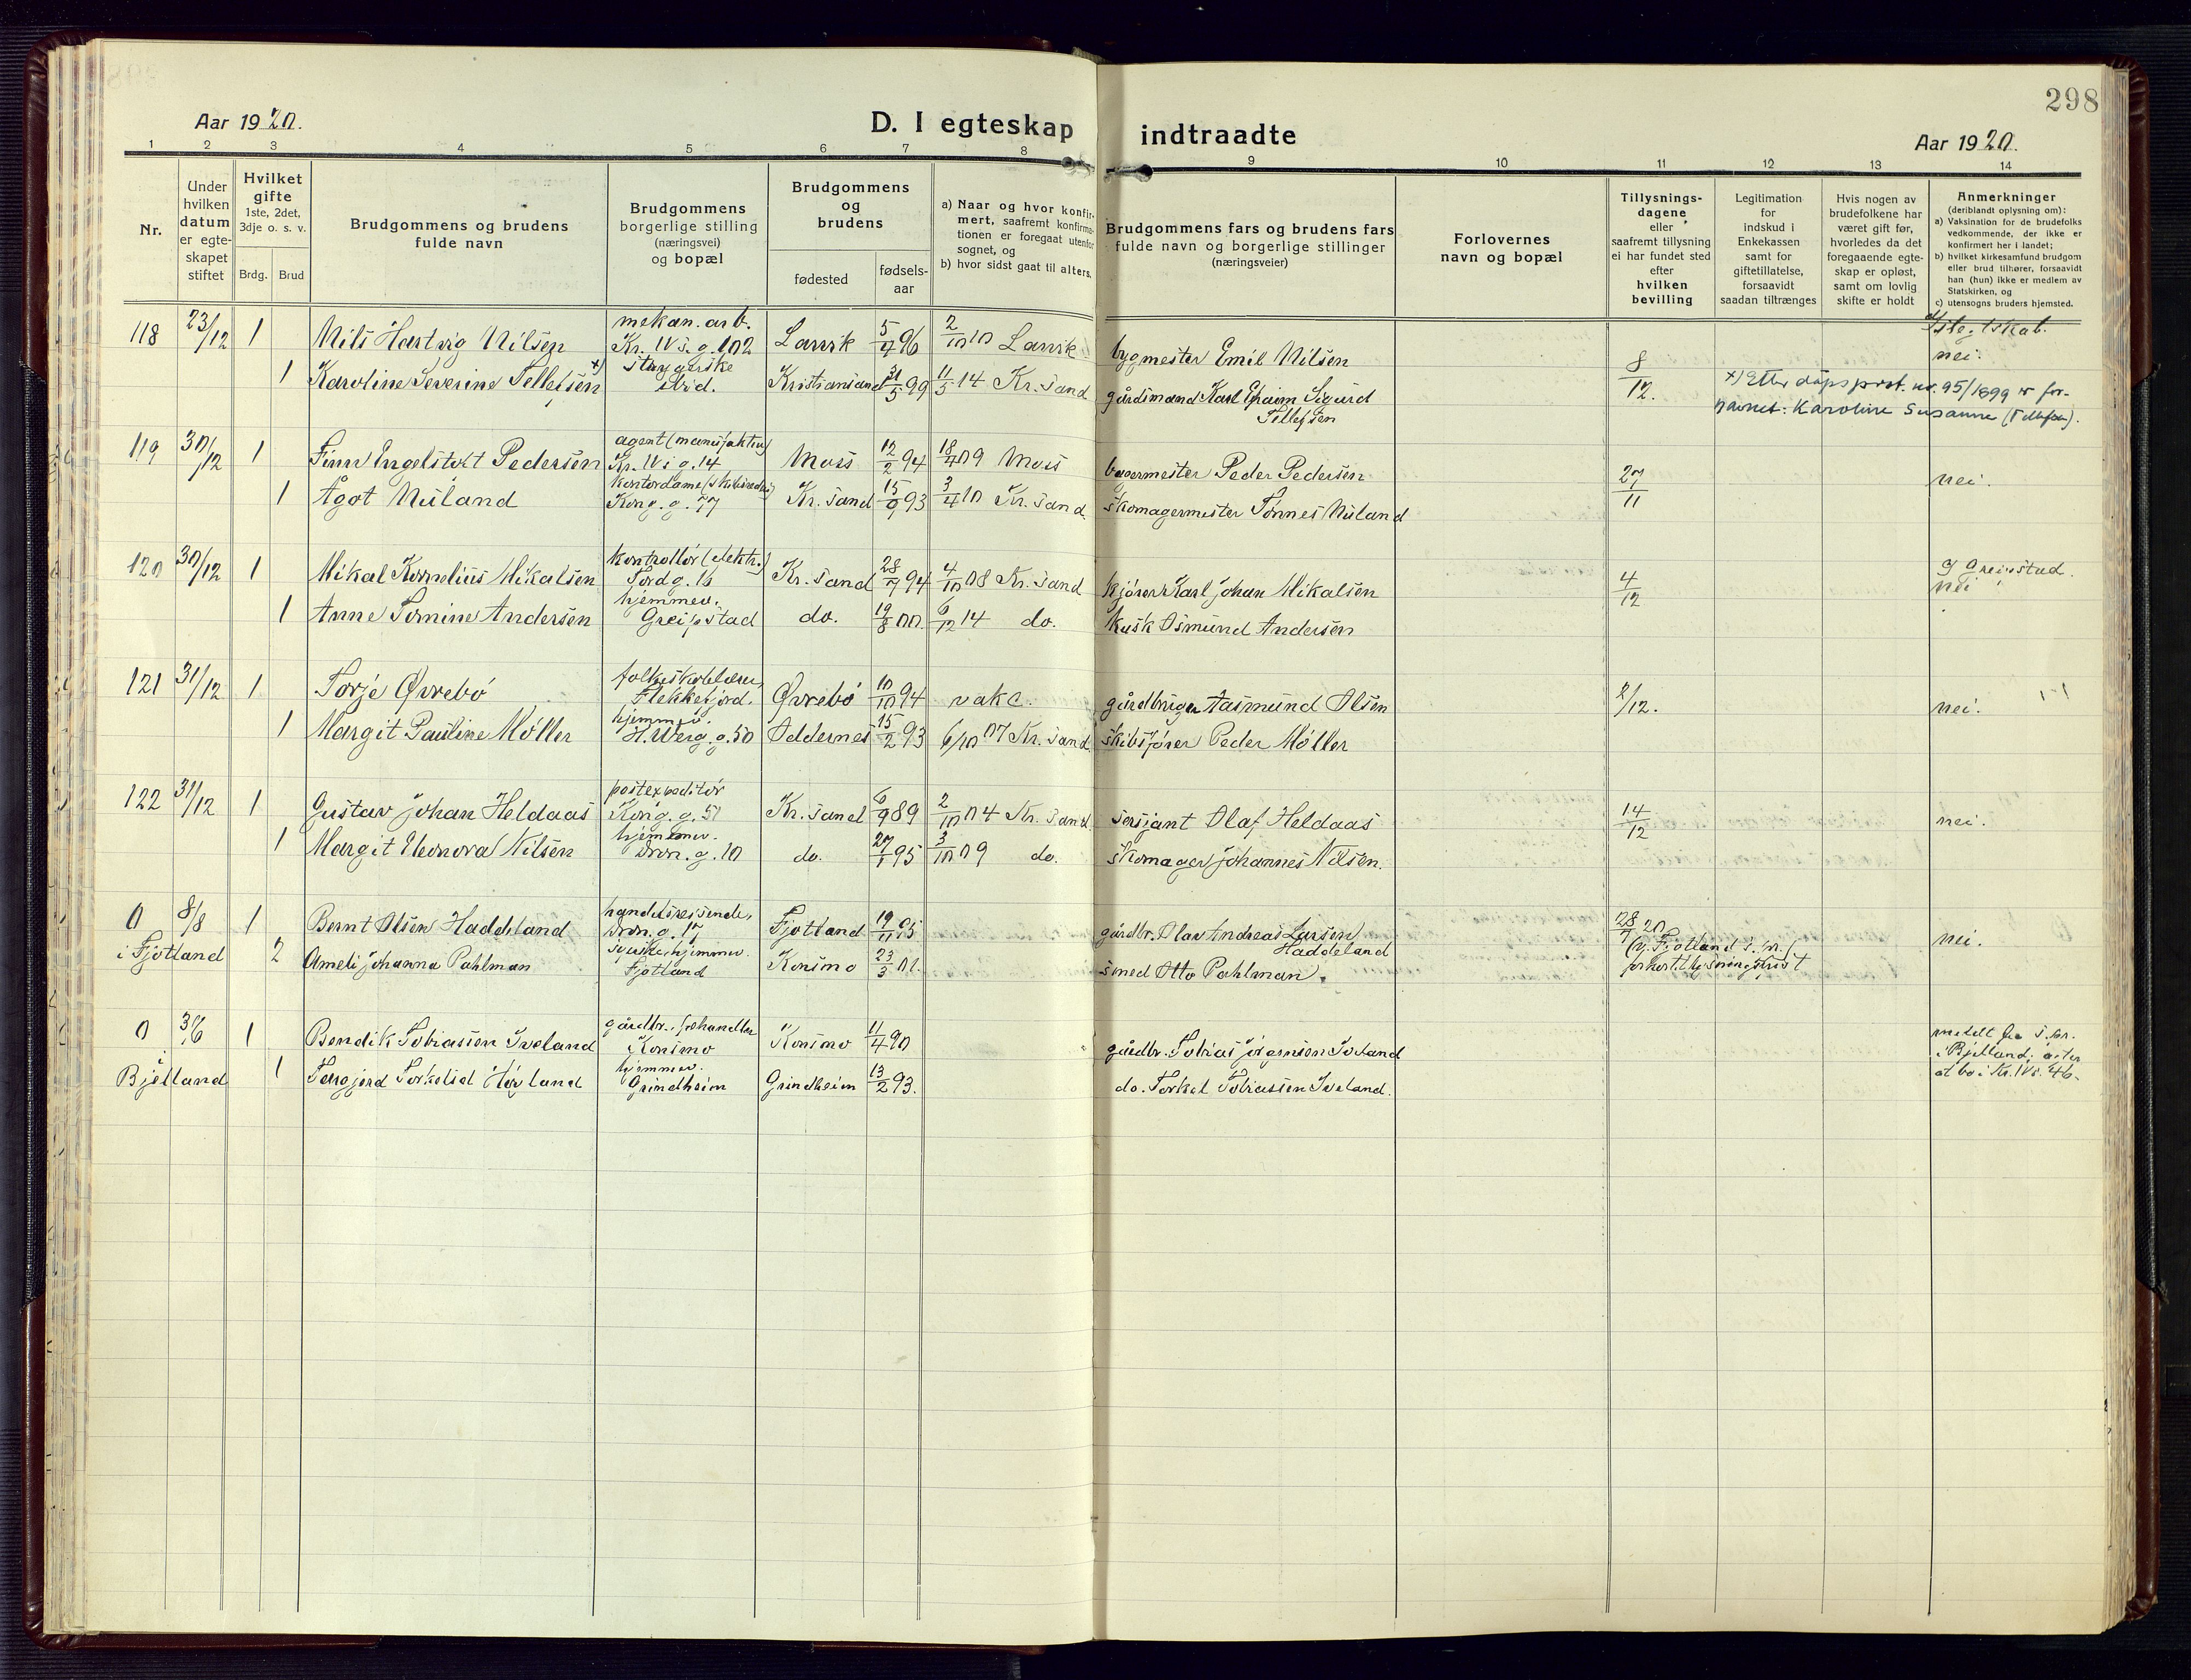 298
Aar 1920.
D. I egteskap indtraadte
Aar 1920.
1 2 3 4 5 6 7 8 9 10 11 12 13 14
Nr.
Under hvilken datum er egte- skapet stiftet
Hvilket gifte 1ste, 2det, 3dje o. s. v.
Brdg. Brud
Brudgommens og brudens fulde navn
Brudgommens borgerlige stilling (næringsvei) og bopæl
Brudgommens og brudens
fødested
fødsels- aar
a) Naar og hvor konfir- mert, saafremt konfirma- tionen er foregaat utenfor sognet, og
b) hvor sidst gaat til alters.
Brudgommens fars og brudens fars fulde navn og borgerlige stillinger (næringsveier)
Forlovernes navn og bopæl
Tillysnings- dagene eller saafremt tillysning ei har fundet sted efter hvilken bevilling
Legitimation for indskud i Enkekassen samt for giftetillatelse, forsaavidt saadan tiltrænges
Hvis nogen av brudefolkene har været gift før, hvorledes da det foregaaende egte- skap er opløst, samt om lovlig skifte er holdt
Anmerkninger (deriblandt oplysning om):
a) Vaksination for de brudefolks vedkommende, der ikke er konfirmert her i landet;
b) hvilket kirkesamfund brudgom eller brud tilhører, forsaavidt han (hun) ikke er medlem av Statskirken, og
c) utensogns bruders hjemsted.
118 23/12 1 Nils Hartvig Nilsen mekan. arb. Kr. IVs. g. 102 Larvik 5/4 96 2/10 10 Larvik bygmester Emil Nilsen 8/12. nei.
1 Karoline Severine Tellefsen x) strygerske ibid. Kristiansand 31/5 99 11/5 14 Kr. Sand gårdsmand Karl Efraim Sigurd Tellefsen
x) Etter dåpsprot. nr. 95/1899 er for-
navnet: Karoline Susanne (Tellefsen).
119 30/12 1 Finn Engelstoft Pedersen agent (manufaktur) Kr. IVs g. 14 Moss 12/2 94 18/4 09 Moss bagermester Peder Pedersen 27/11 nei.
1 Ågot Nuland kontordame Kong. g. 77 Kr. Sand 15/9 93 3/4 10 Kr. Sand. skomagermester Tønnes Nuland
120 30/12 1 Mikal Kornelius Mikalsen kontrollør (elektr.) Tordg. 16 Kr. Sand 28/7 94 4/10 08 Kr. Sand kjører Karl Johan Mikalsen 4/12 nei
1 Anne Tomine Andersen hjemmev. Greipstad do. 19/8 00. 6/12 14 do. kusk Asmund Andersen
121 31/12 1 Torje Øvrebö folkeskolelærer, Flekkefjord. Øvrebö 10/10 94 gårdbruger Aasmund Olsen 2/12. nei.
1 Margit Pauline Møller hjemmev. H. Werg. g. 50 Oddernes 15/2 93 6/10 07 Kr. Sand skibsfører Peder Møller
122 31/12 1 Gustav Johan Heldaas postexpeditør Kong. g. 51 Kr. Sand 6/9 89 2/10 04 Kr. Sand. sersjant Olaf Heldaas 14/12 nei.
1 Margit Eleonora Nilsen hjemmev. Dron. g. 10 do. 27/1 95 3/10 09 do. skomager Johannes Nilsen.
0 8/8 1 Bernt Olsen Haddeland handelsreisende, Dron. g. 17 Fjotland 19/11 95 gårdbr. Olav Andreas Larsen Haddeland 28/7 20 nei.
i Fjotland 2 Ameli Johanna Pahlman hjemmev. Fjotland Konsmo 23/3 01. smed Otto Pahlman. forkort. lysningsfrist
0 3/6 1 Bendik Tobiassen Iveland gårdbr. Konsmo Konsmo 11/4 90 gårdbr. Tobias Jörgensen Iveland meldt fra s. pr. i Bjelland; akter at bo i Kr. IVs. 46.
i Bjelland 1 Torgjerd Torkelsd Høyland hjemmev. Grindheim Grindheim 13/2 93. do. Torkel Tobiassen Iveland.